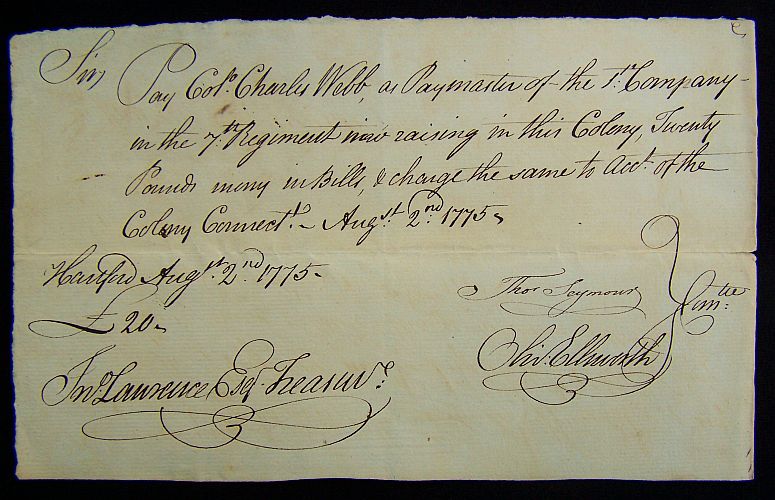 Sir, Pay Colo. Charles Webb, as Paymaster of the 1st. Company
in the 7th. Regiment now raising in this Colony, Twenty
Pounds mony in Bills, & charge the same to Acct. of the
Colony Connectt. Augst. 2nd. 1775.
Hartford Augst. 2nd. 1775.
£20.
Thos Seymour
Comtte:
Olivr. Ellsworth
Jno. Lawrence Esqr. Treasurr.